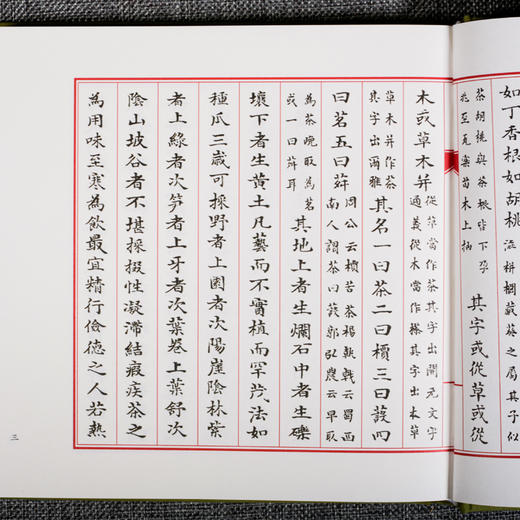 如丁香根如胡桃
澁栟櫚蒲葵之屬其子似
茶胡桃與茶根皆下孕
兆至瓦礫苗木上抽
其字或從草或從
木或草木并
從草當作茶其字出開元文字
音義從木當作搽其字出本草
草木并作荼
其字出爾雅
其名一曰茶二曰檟三曰蔎四
曰茗五曰荈
周公云檟苦荼楊執戟云蜀西
南人謂茶曰蔎郭弘農云早取
為茶晚取為茗
或一曰荈耳
其地上者生爛石中者生礫
壤下者生黃土凡藝而不實植而罕茂法如
種瓜三歲可採野者上園者次陽崖陰林紫
者上綠者次筍者上牙者次葉卷上葉舒次
陰山坡谷者不堪採掇性凝滯結瘕疾茶之
為用味至寒為飲最宜精行儉德之人若熱
三